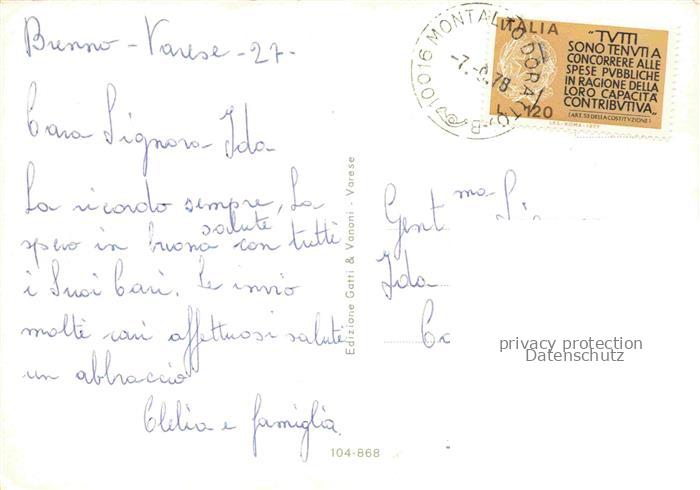 Brenno - Varese - 27-
Cara Signora Ida
La ricordo sempre, La
spero in buona salute con tutti
i Suoi Cari. Le invio
molti cari affettuosi saluti
un abbraccio
Clelia e famiglia
Edizione Gatti & Vanoni - Varese
104-868
10016 MONTALTO DORA (TO)
-7.-9.78
ITALIA
"TVTTI
SONO TENVTI A
CONCORRERE ALLE
SPESE PVBBLICHE
IN RAGIONE DELLA
LORO CAPACITÀ
CONTRIBVTIVA"
(ART. 53 DELLA COSTITVZIONE)
L. 120
Gent.ma
Ida
privacy protection
Datenschutz